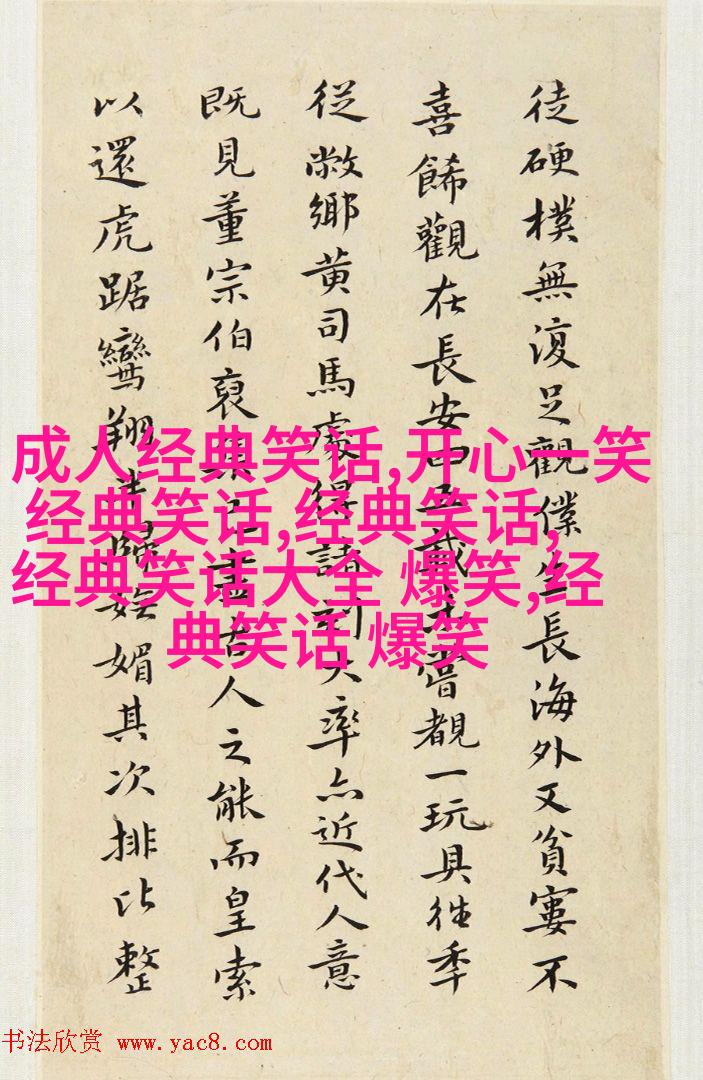 徒硬樸無復足觀僕生長海外又貧窶不
喜餙觀在長安中五載未嘗覩一玩具往季
從敝鄉黄司馬處得諸刻大率亦近代人意
既見董宗伯裒集已盡古人之能而皇索
以還虎踞鸞翔歸媚其次排比整
成人经典笑话,开心一笑
经典笑话,经典笑话,
经典笑话大全 爆笑,经
典笑话 爆笑
书法欣赏 www.yac8.com